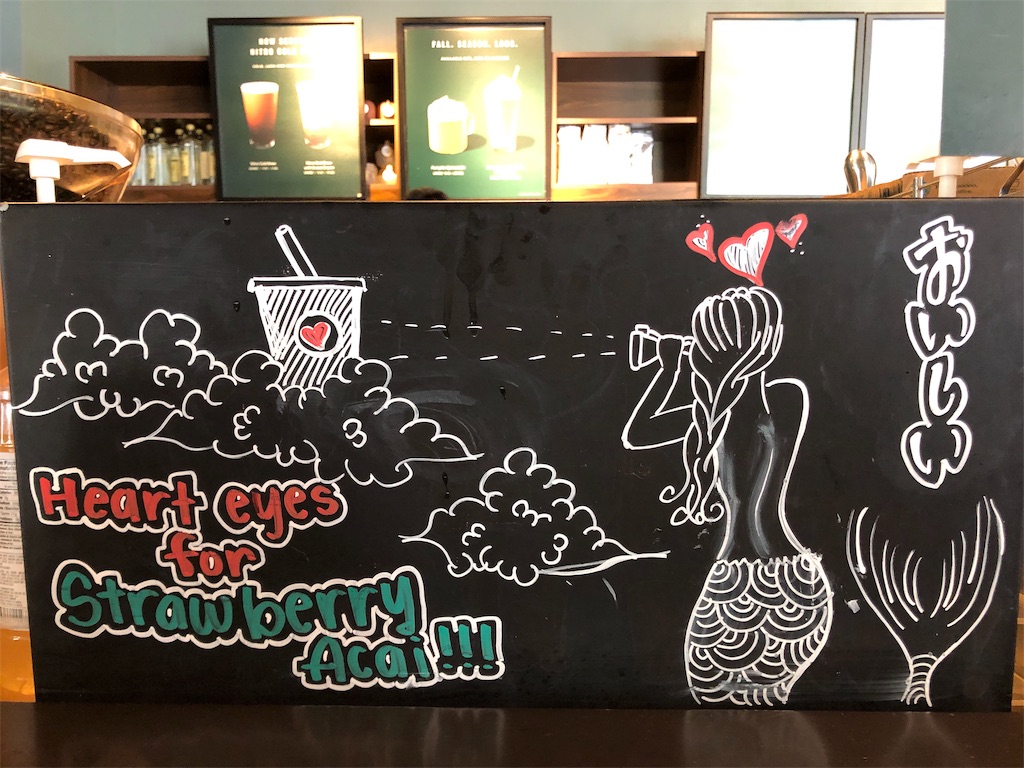 NOW
NITRO COLD
FALL. SEASON. LONG.
おいしい
Heart eyes
for
Strawberry
Acai!!!